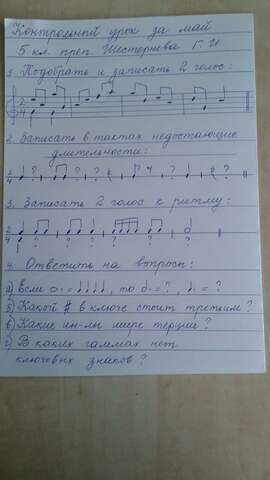 Контрольный урок за май
5 кл. преп. Шестернева Г. И
1. Подобрать и записать 2 голос:
2. Записать в тактах недостающие
длительности:
2 4 ? ? ? ? ? ?
3. Записать 2 голос к ритму:
2 4 ? ? ? ? ?
4. Ответить на вопросы:
а) Если о. = ♩♩♩♩, то d. = ?, ♩. = ?
б) Какой # в ключе стоит третьим?
в) Какие ин-лы шире терции?
г) В каких гаммах нет
ключевых знаков?